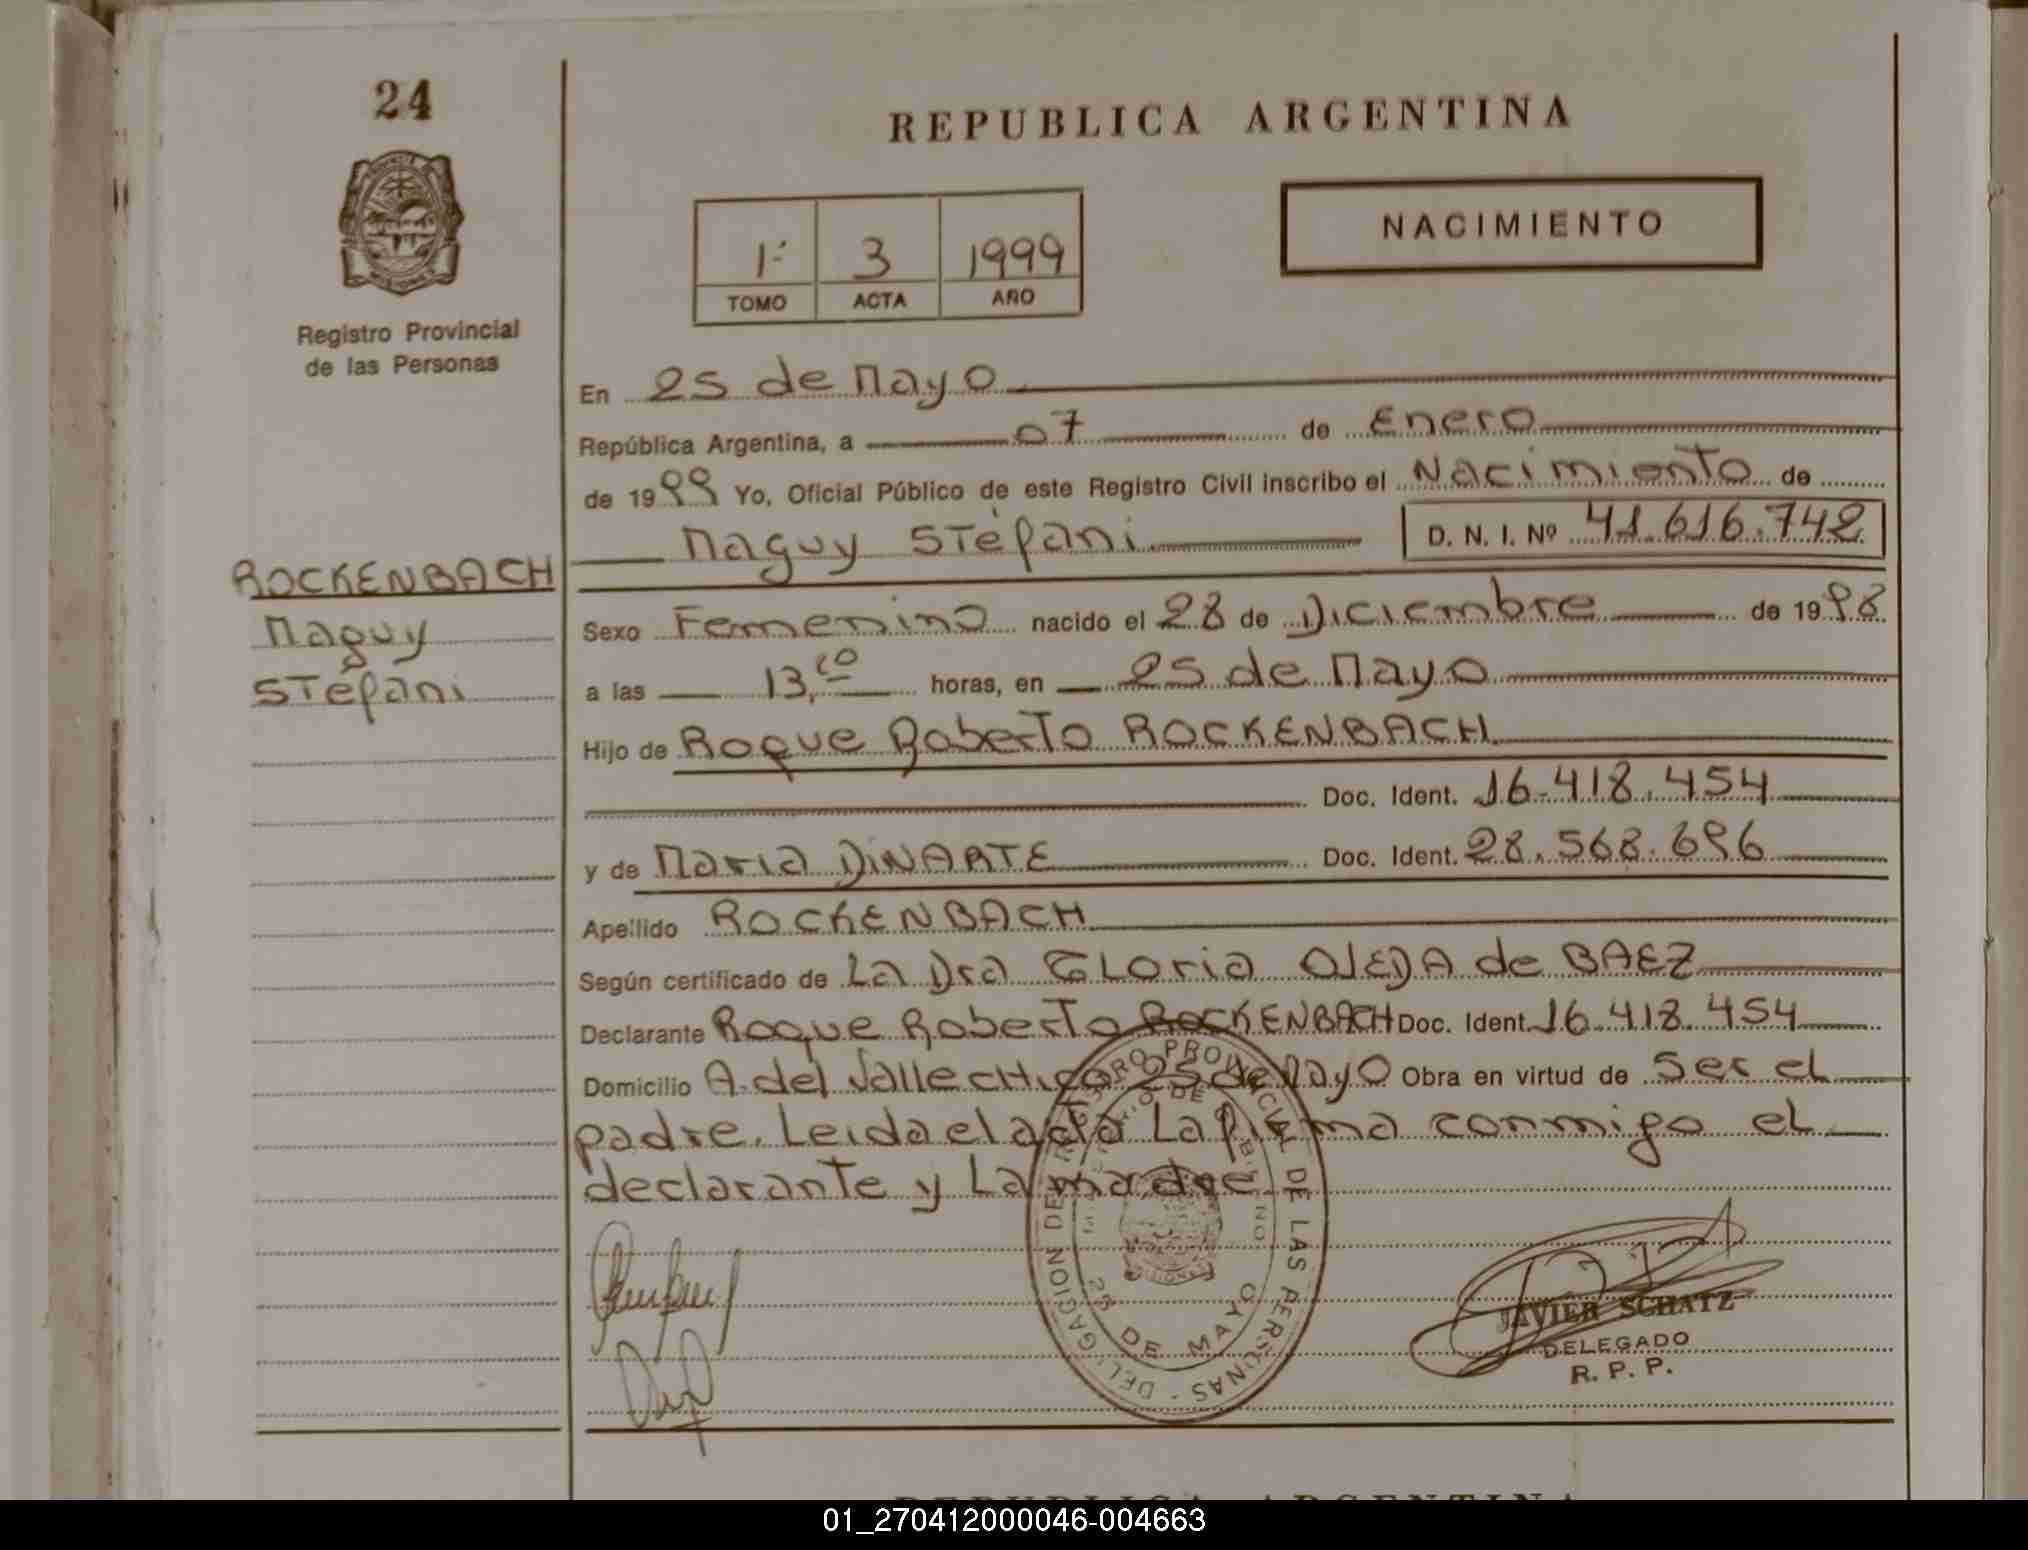 24
REPUBLICA ARGENTINA
NACIMIENTO
1º 3 1999
TOMO ACTA AÑO
Registro Provincial
de las Personas
En 25 de Mayo
República Argentina, a 07 de Enero
de 1999 Yo, Oficial Público de este Registro Civil inscribo el Nacimiento de
Maguy Stéfani D. N. I. Nº 41.616.742
ROCKENBACH
Maguy
Stéfani
Sexo Femenino nacido el 28 de Diciembre de 1998
a las 13,00 horas, en 25 de Mayo
Hijo de Roque Roberto ROCKENBACH
Doc. Ident. 16.418.454
y de Maria DINARTE Doc. Ident. 28.568.696
Apellido ROCKENBACH
Según certificado de La Dra GLoria OJEDA de BAEZ
Declarante Roque Roberto ROCKENBACH Doc. Ident. 16.418.454
Domicilio A. del Valle CHico 25 de Mayo Obra en virtud de Ser el
padre. Leida el acta La firma conmigo el
declarante y La madre
DELEGACION DE REGISTRO PROVINCIAL DE LAS PERSONAS
MINISTERIO DE GOBIERNO
25 DE MAYO
MISIONES
JAVIER SCHATZ
DELEGADO
R. P. P.
REPUBLICA ARGENTINA
01_270412000046-004663